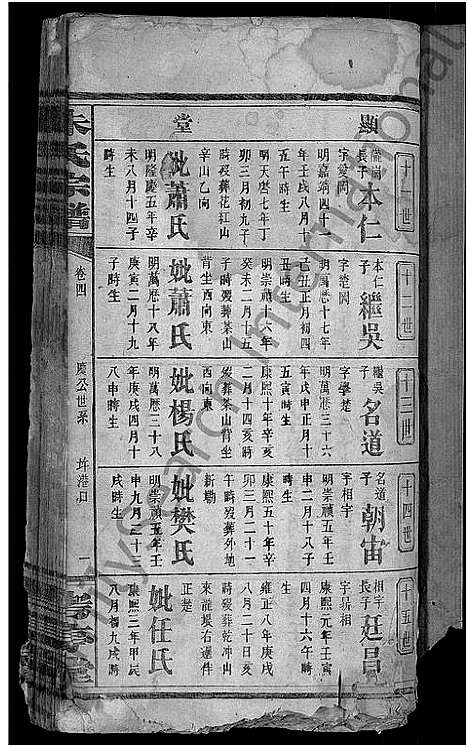 顯
堂
十一世
長子
本仁
字愛閩
明嘉靖四十一
年壬戌八月十
五午時生
明天啓七年丁
卯三月初九子
時歿葬花紅山
辛山乙向
妣蕭氏
明隆慶五年辛
未八月十四子
十二世
本仁
子
繼吳
字楚閩
明萬歷十七年
己丑正月初四
丑時生
明崇禎十六年
癸未二月十五
子時歿葬茶山
背坐西向東
妣蕭氏
明萬歷十八年
庚寅二月十九
子時生
十三世
繼吳
子
名道
字學楚
明萬歷三十六
年戊申正月十
五寅時生
康熙十年辛亥
二月十四亥時
歿葬茶山背坐
西向東
妣楊氏
明萬歷三十八
年庚戌四月十
八申時生
十四世
名道
子
朝宙
字相宇
明崇禎五年壬
申二月十八子
時生
康熙五十年辛
卯三月二十一
午時歿葬外地
新塘
妣樊氏
明崇禎五年壬
申九月二十二
戌時生
十五世
相宇
長子
廷昌
字易相
康熙元年壬寅
四月十六午時
生
雍正八年庚戌
八月二十日亥
時歿葬乾冲山
來龍堰右邊件
正楚
妣任氏
康熙三年甲辰
八月初九戌時
朱氏宗譜
卷四
慶公世系
圷港口
一